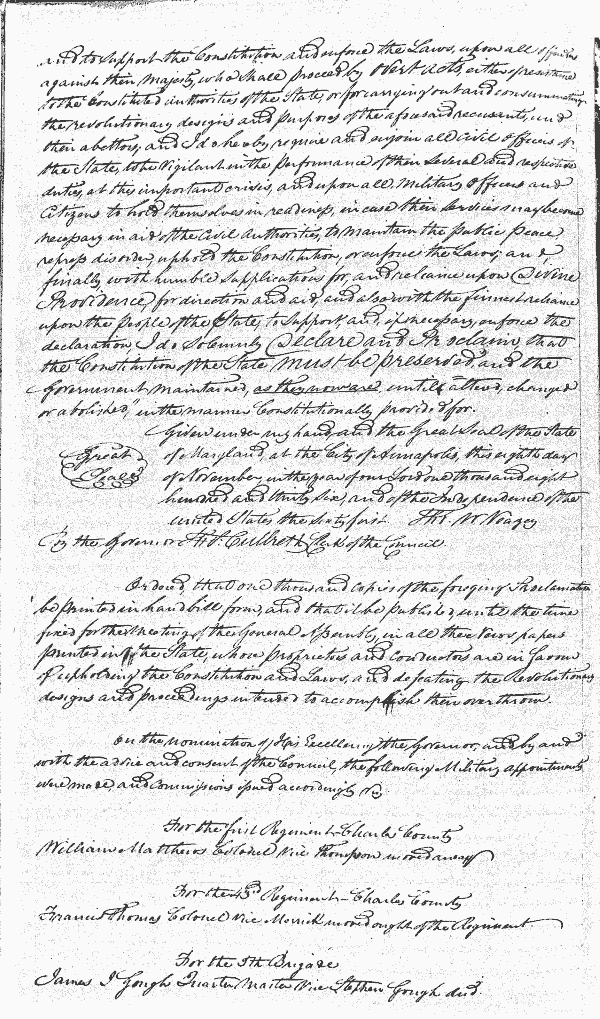 and to support the Constitution and enforce the Laws, upon all offenders
against their Majesty, who shall proceed by overt acts, either of resistance
to the Constituted authorities of the State, or for carrying out and consummating
the revolutionary designs and purposes of the aforesaid recusants, and
their abettors, and I do hereby require and enjoin all civil officers of
the State, to be Vigilant in the Performance of their several and respective
duties, at this important crisis, and upon all, Military officers and
Citizens to hold themselves in readiness, in case their services may become
necessary in aid of the Civil Authorities, to maintain the Public Peace
repress disorder, uphold the Constitution, or enforce the Laws; and,
finally with humble supplications for, and reliance upon Divine
Providence, for direction and aid, and also with the firmest reliance
upon the People of the State, to support, and, if necessary, enforce the
declaration, I do Solemnly Declare and Proclaim, that
the Constitution of the State must be preserved, and the
Government maintained, as they now are, until altered, changed
or abolished," in the manner Constitutionally provided for.
Given under my hand, and the Great Seal of the State
Great
Seal
of Maryland, at the City of Annapolis, this eighth day
of November, in the year of our Lord one thousand eight
hundred and thirty six, and of the Independence of the
United States the sixty first. Tho. W Veazey
By the Governor Tho. Culbreth, Clerk of the Council.
Ordered, that one thousand copies of the foregoing Proclamation
be printed in hand bill form, and that it be published, until the time
fixed for the Meeting of the General Assembly, in all the News papers
printed in the State, whose Proprietors and Conductors are in favour
of upholding the Constitution and Laws, and defeating the Revolutionary
designs and proceedings intended to accomplish their overthrow.
On the nomination of His Excellency the Governor, and by and
with the advice and consent of the Council, the following Military appointments
were made, and Commissions issued accordingly viz
For the first Regiment - Charles County
William Matthews Colonel Vice Thompson moved away
For the 43d Regiment - Charles County
Francis Thomas Colonel Vice Merrick moved out of the Regiment
For the 5th Brigade
James J Gough Quarter Master Vice Stephen Gough decd.